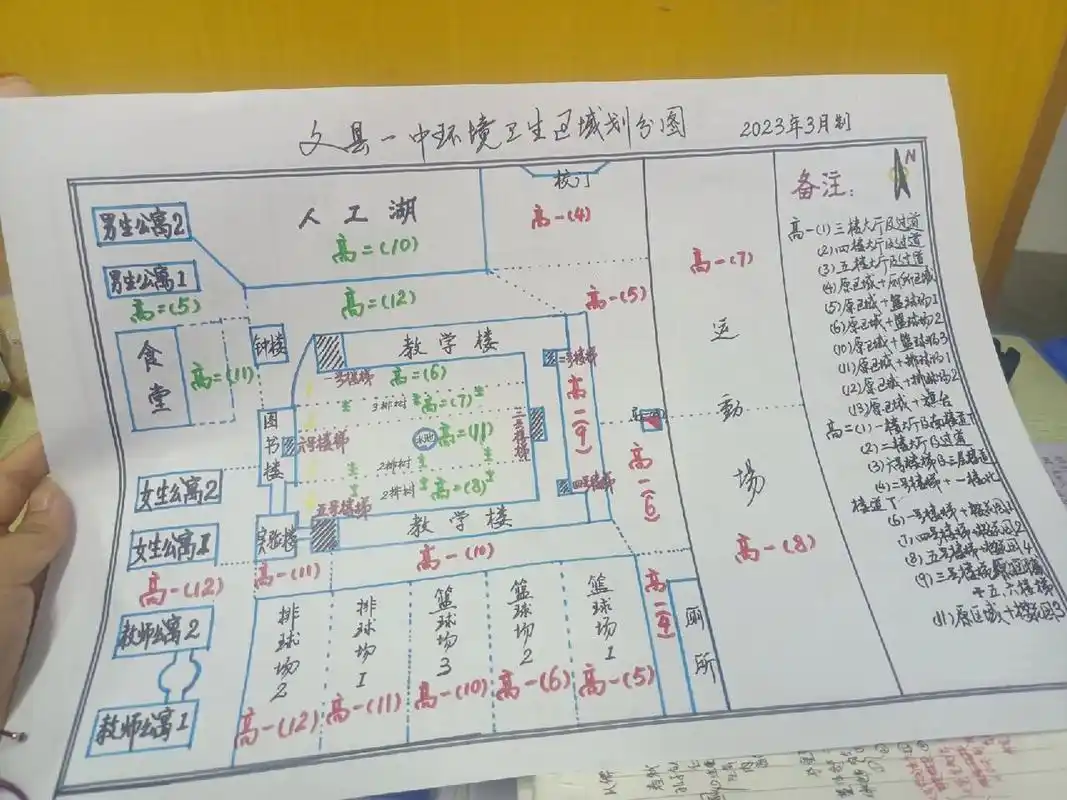 文县一中环境卫生区域划分图
2023年3月制
男生公寓2
人工湖
高二(10)
校门
高一(4)
男生公寓1
高二(5)
高二(12)
高一(5)
高一(7)
食堂
高二(11)
钟楼
教学楼
一号楼梯
高二(6)
二号楼梯
3排树
高二(7)
高一(9)
图书楼
六号楼梯
水池
高二(1)
三号楼梯
2排树
2排树
高二(8)
四号楼梯
高一(6)
运动场
女生公寓2
五号楼梯
教学楼
女生公寓1
实验楼
高一(10)
高一(8)
高一(12)
高一(11)
教师公寓2
教师公寓1
排球场2
高一(12)
排球场1
高一(11)
篮球场3
高一(10)
篮球场2
高一(6)
篮球场1
高一(5)
高一(4)
厕所
N
备注:
高一(1)三楼大厅及过道
(2)四楼大厅及过道
(3)五楼大厅及过道
(4)原区域+厕所区域
(5)原区域+篮球场1
(6)原区域+篮球场2
(10)原区域+篮球场3
(11)原区域+排球场1
(12)原区域+排球场2
(13)原区域+旗台
高二(1)一楼大厅及
(2)二楼大厅及过道
(3)六号楼梯及三层楼道
(4)二号楼梯+一楼北
楼道下
(6)一号楼梯+
(7)四号楼梯
(8)五号楼梯
(9)三号楼梯
+五、六楼梯
(11)原区域+